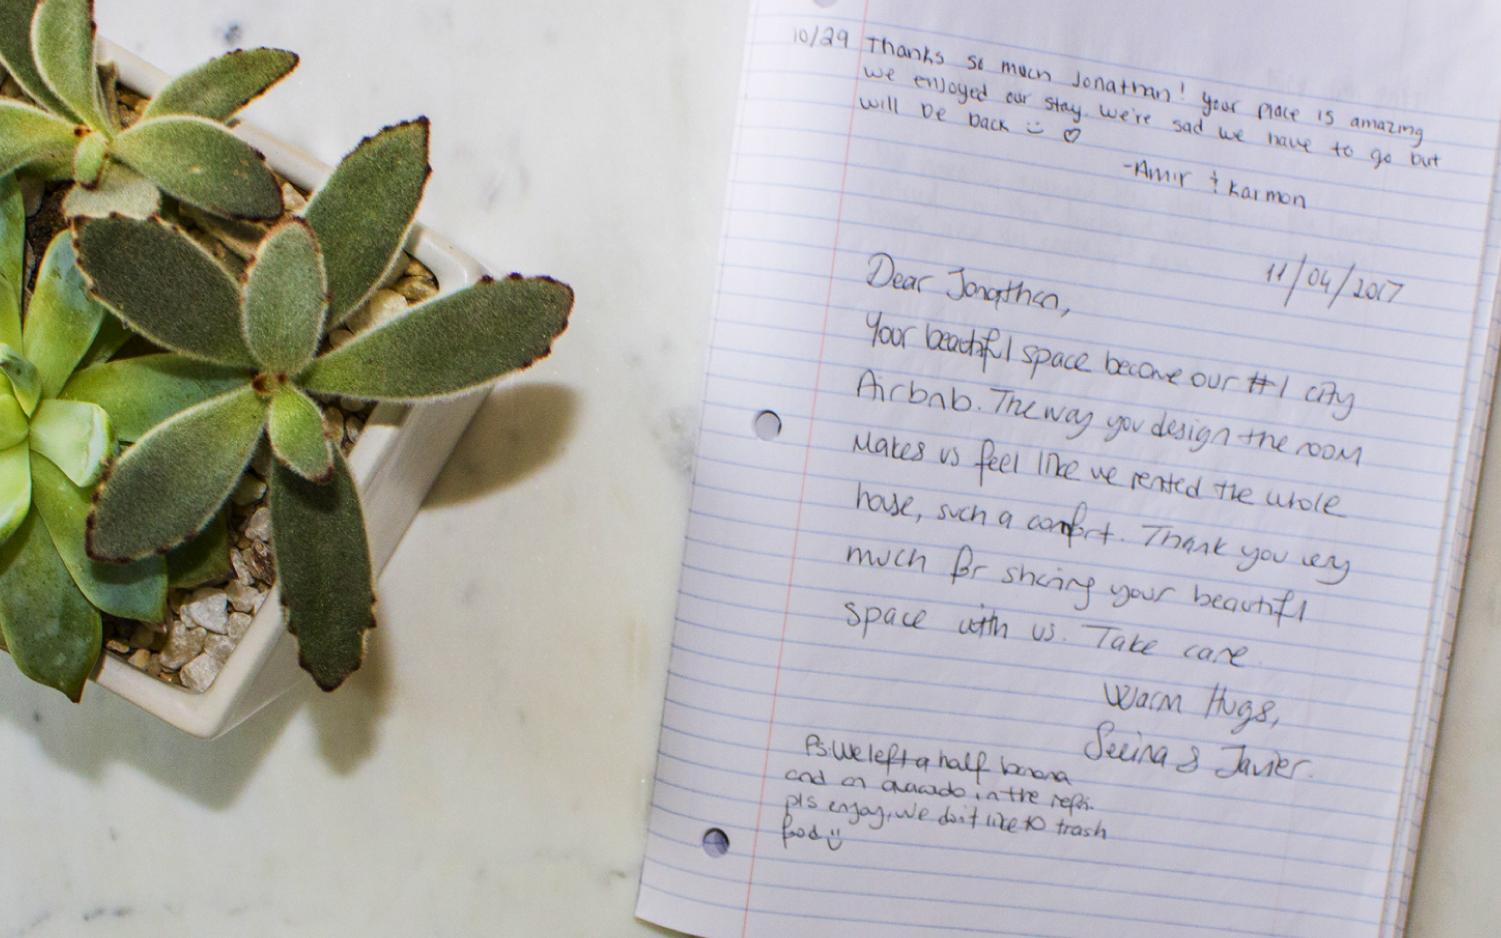 10/29 Thanks so much Jonathan! Your place is amazing
we enjoyed our stay. we're sad we have to go but
will be back :) ♡
-Amir & Karmon
11/04/2017
Dear Jonathan,
Your beautiful space become our #1 city
Airbnb. The way you design the room
Makes us feel like we rented the whole
house, such a comfort. Thank you very
much for sharing your beautifl
space with us. Take care.
Warm Hugs,
& Javier.
Ps: We left a half banana
and an avacado in the refri.
pls enjoy, we don't like to trash
food :)